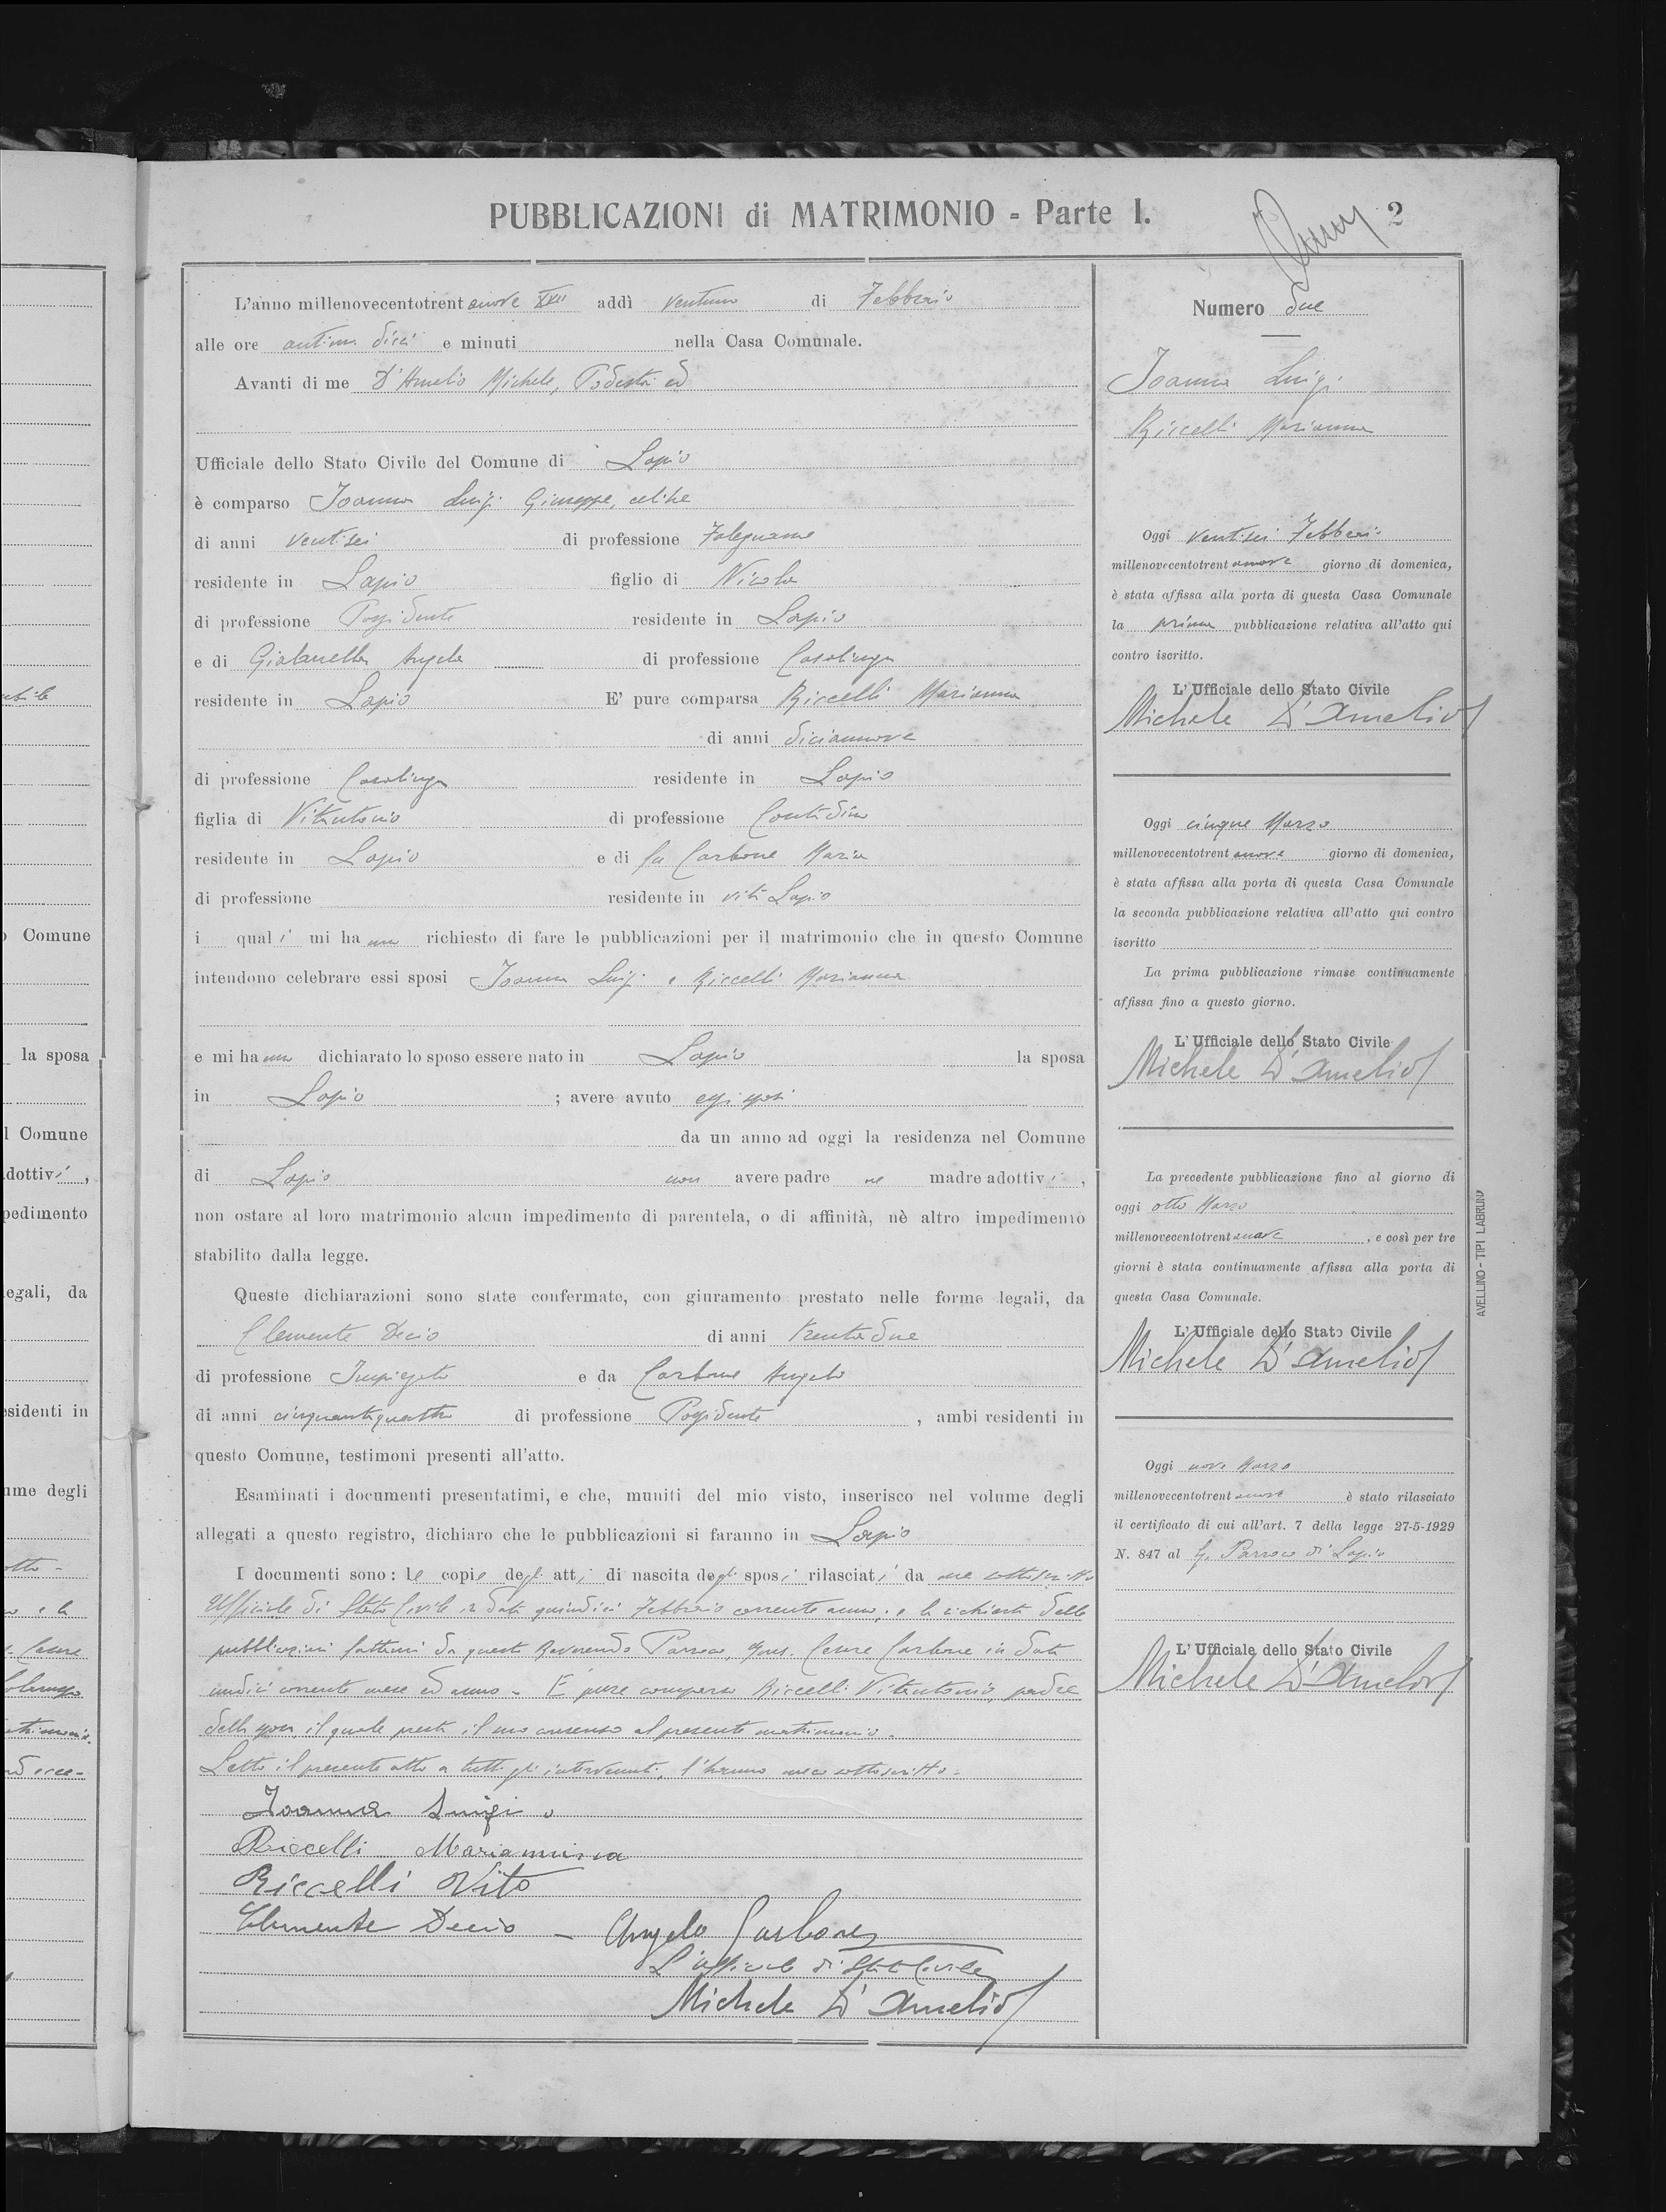 PUBBLICAZIONI di MATRIMONIO - Parte I.
2
L'anno millenovecentotrentanove XVII addì ventuno di Febbraio
alle ore antim. dieci e minuti nella Casa Comunale.
Avanti di me D'Amelio Michele, Podestà ed
Ufficiale dello Stato Civile del Comune di Lapio
è comparso Joanna Luigi Giuseppe, celibe
di anni ventisei di professione Falegname
residente in Lapio figlio di Nicola
di professione Possidente residente in Lapio
e di Angela di professione Casalinga
residente in Lapio E' pure comparsa Riccelli Marianna
di anni diciannove
di professione Casalinga residente in Lapio
figlia di Vitantonio di professione Contadino
residente in Lapio e di fu Carbone Maria
di professione residente in vita Lapio
i quali mi hanno richiesto di fare le pubblicazioni per il matrimonio che in questo Comune
intendono celebrare essi sposi Joanna Luigi e Riccelli Marianna
e mi hanno dichiarato lo sposo essere nato in Lapio la sposa
in Lapio ; avere avuto essi sposi
da un anno ad oggi la residenza nel Comune
di Lapio non avere padre nè madre adottivi,
non ostare al loro matrimonio alcun impedimento di parentela, o di affinità, nè altro impedimento
stabilito dalla legge.
Queste dichiarazioni sono state confermate, con giuramento prestato nelle forme legali, da
Clemente Decio di anni trentadue
di professione Impiegato e da Carbone Angelo
di anni cinquantaquattro di professione Possidente , ambi residenti in
questo Comune, testimoni presenti all'atto.
Esaminati i documenti presentatimi, e che, muniti del mio visto, inserisco nel volume degli
allegati a questo registro, dichiaro che le pubblicazioni si faranno in Lapio
I documenti sono: le copie degli atti di nascita degli sposi rilasciati da me sottoscritto
Ufficiale di Stato Civile in data quindici Febbraio corrente anno; e la richiesta delle
pubblicazioni fattemi da questo Reverendo Parroco, Cesare Carbone in data
undici corrente mese ed anno - È pure comparso Riccelli Vitantonio, padre
della sposa, il quale presta il suo consenso al presente matrimonio.
Letto il presente atto a tutti gli intervenuti, l'hanno meco sottoscritto.
Joanna Luigi
Riccelli Mariannina
Riccelli Vito
Clemente Decio - Angelo Carbone
L'ufficiale di Stato Civile
Michele D'Amelio
Numero due
Joanna Luigi
Riccelli Marianna
Oggi ventisei Febbraio
millenovecentotrentanove giorno di domenica,
è stata affissa alla porta di questa Casa Comunale
la prima pubblicazione relativa all'atto qui
contro iscritto.
L'Ufficiale dello Stato Civile
Michele D'Amelio
Oggi cinque Marzo
millenovecentotrentanove giorno di domenica,
è stata affissa alla porta di questa Casa Comunale
la seconda pubblicazione relativa all'atto qui contro
iscritto
La prima pubblicazione rimase continuamente
affissa fino a questo giorno.
L'Ufficiale dello Stato Civile
Michele D'Amelio
La precedente pubblicazione fino al giorno di
oggi otto Marzo
millenovecentotrentanove , e così per tre
giorni è stata continuamente affissa alla porta di
questa Casa Comunale.
L'Ufficiale dello Stato Civile
Michele D'Amelio
Oggi nove Marzo
millenovecentotrentanove è stato rilasciato
il certificato di cui all'art. 7 della legge 27-5-1929
N. 847 al Parroco di Lapio
L'Ufficiale dello Stato Civile
Michele D'Amelio
AVELLINO - TIPI LABRUNO
Comune
la sposa
l Comune
dottivi,
pedimento
egali, da
esidenti in
ume degli